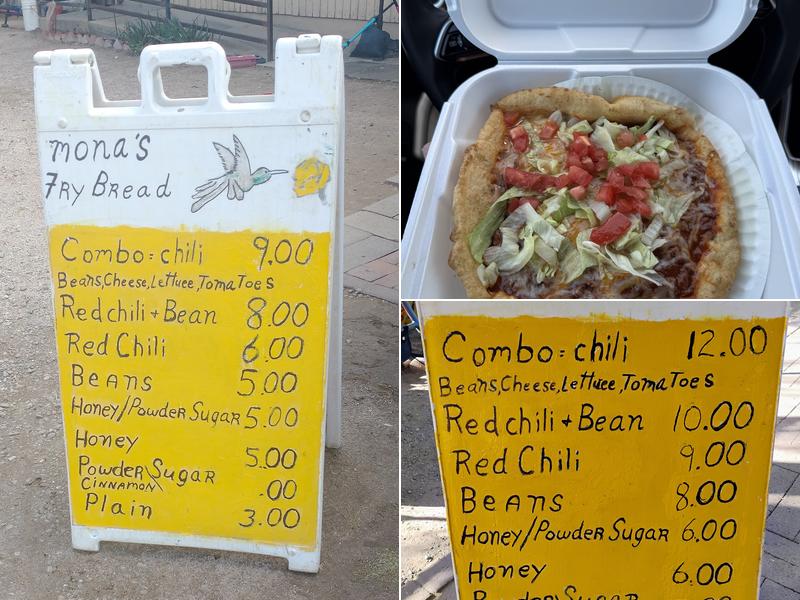 mona's
Fry Bread
Combo: chili 9.00
Beans, Cheese, Lettuce, Tomatoes
Red chili + Bean 8.00
Red Chili 6.00
Beans 5.00
Honey/Powder Sugar 5.00
Honey 5.00
Powder Sugar .00
Cinnamon
Plain 3.00
Combo: chili 12.00
Beans, Cheese, Lettuce, Tomatoes
Red chili + Bean 10.00
Red Chili 9.00
Beans 8.00
Honey/Powder Sugar 6.00
Honey 6.00
Powder Sugar .00